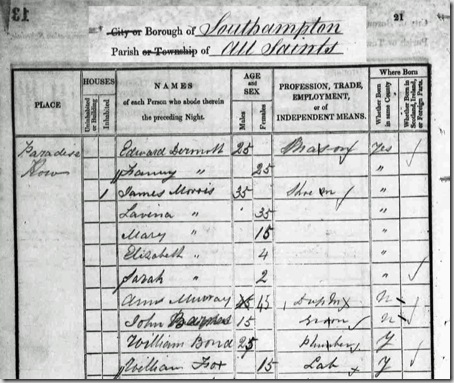 13
21
City or Borough of Southampton
Parish or Township of All Saints
PLACE
HOUSES
Uninhabited or Building
Inhabited
NAMES of each Person who abode therein the preceding Night.
AGE and SEX
Males
Females
PROFESSION, TRADE, EMPLOYMENT, or of INDEPENDENT MEANS.
Where Born
Whether Born in same County
Whether Born in Scotland, Ireland, or Foreign Parts.
Paradise Row Edward Dermott 25 Mason Yes
Fanny " 25 "
1 James Morris 35 Shoe m "
Lavina " 35 "
Mary " 15 "
Elizabeth " 4 "
Sarah " 2 "
Ann Murray 45 N
John 15 N
William Bond 25 Y
William Fox 15 Lab Y